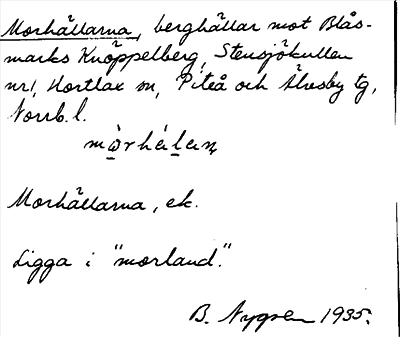 Morhällarna, berghällar mot Blås-
marks Knöppelberg, Stensjökullen
nr 1, Hortlax sn, Piteå och Älvsby tg,
Norrb. l.
mò̱rhá̱la̱n̥
Morhällarna, ek.
Ligga i "morland".
B. Nygren 1935.